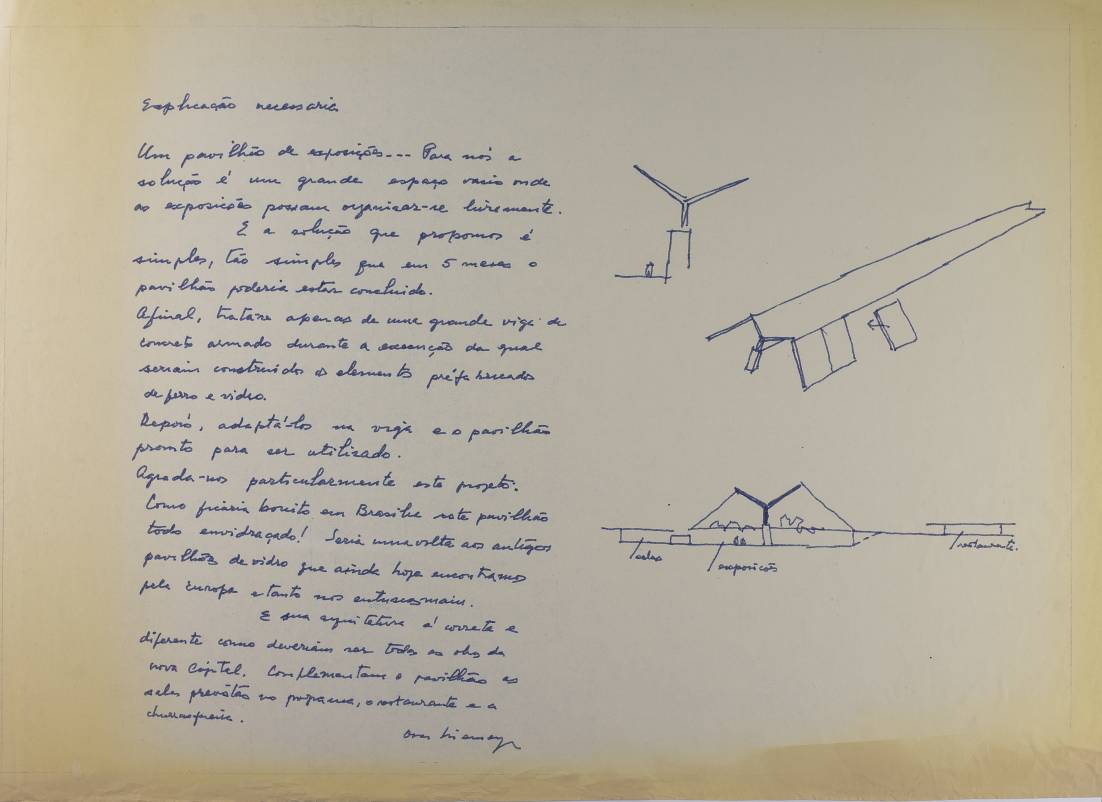 Explicação necessaria
Um pavilhão de exposições... Para nós a
solução é um grande espaço vasio onde
as exposições possam organizar-se livremente.
E a solução que propomos é
simples, tão simples que em 5 meses o
pavilhão poderia estar concluido.
Afinal, trata-se apenas de uma grande viga de
concreto armado durante a execução da qual
seriam construidos os elementos préfabricados
de ferro e vidro.
Depois, adaptá-los na viga e o pavilhão
pronto para ser utilizado.
Agrada-nos particularmente este projeto.
Como ficaria bonito em Brasilia este pavilhão
todo envidraçado! Seria uma volta aos antigos
pavilhões de vidro que ainda hoje encontramos
pela Europa e tanto nos entusiasmam.
E sua arquitetura é correta e
diferente como deveriam ser todas as obras da
nova Capital. Complementam o pavilhão as
salas previstas no programa, o restaurante e a
churrasqueira.
Oscar Niemeyer
salas
exposições
restaurante.